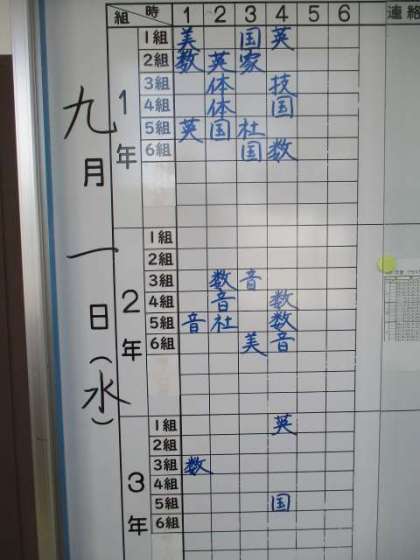 九月一日(水)
組 時 1 2 3 4 5 6 連絡
1年
1組 美 国 英
2組 数 英 家
3組 体 技
4組 体 国
5組 英 国 社
6組 国 数
2年
1組
2組
3組 数 音
4組 音 数
5組 音 社 数
6組 美 音
3年
1組 英
2組
3組 数
4組
5組 国
6組